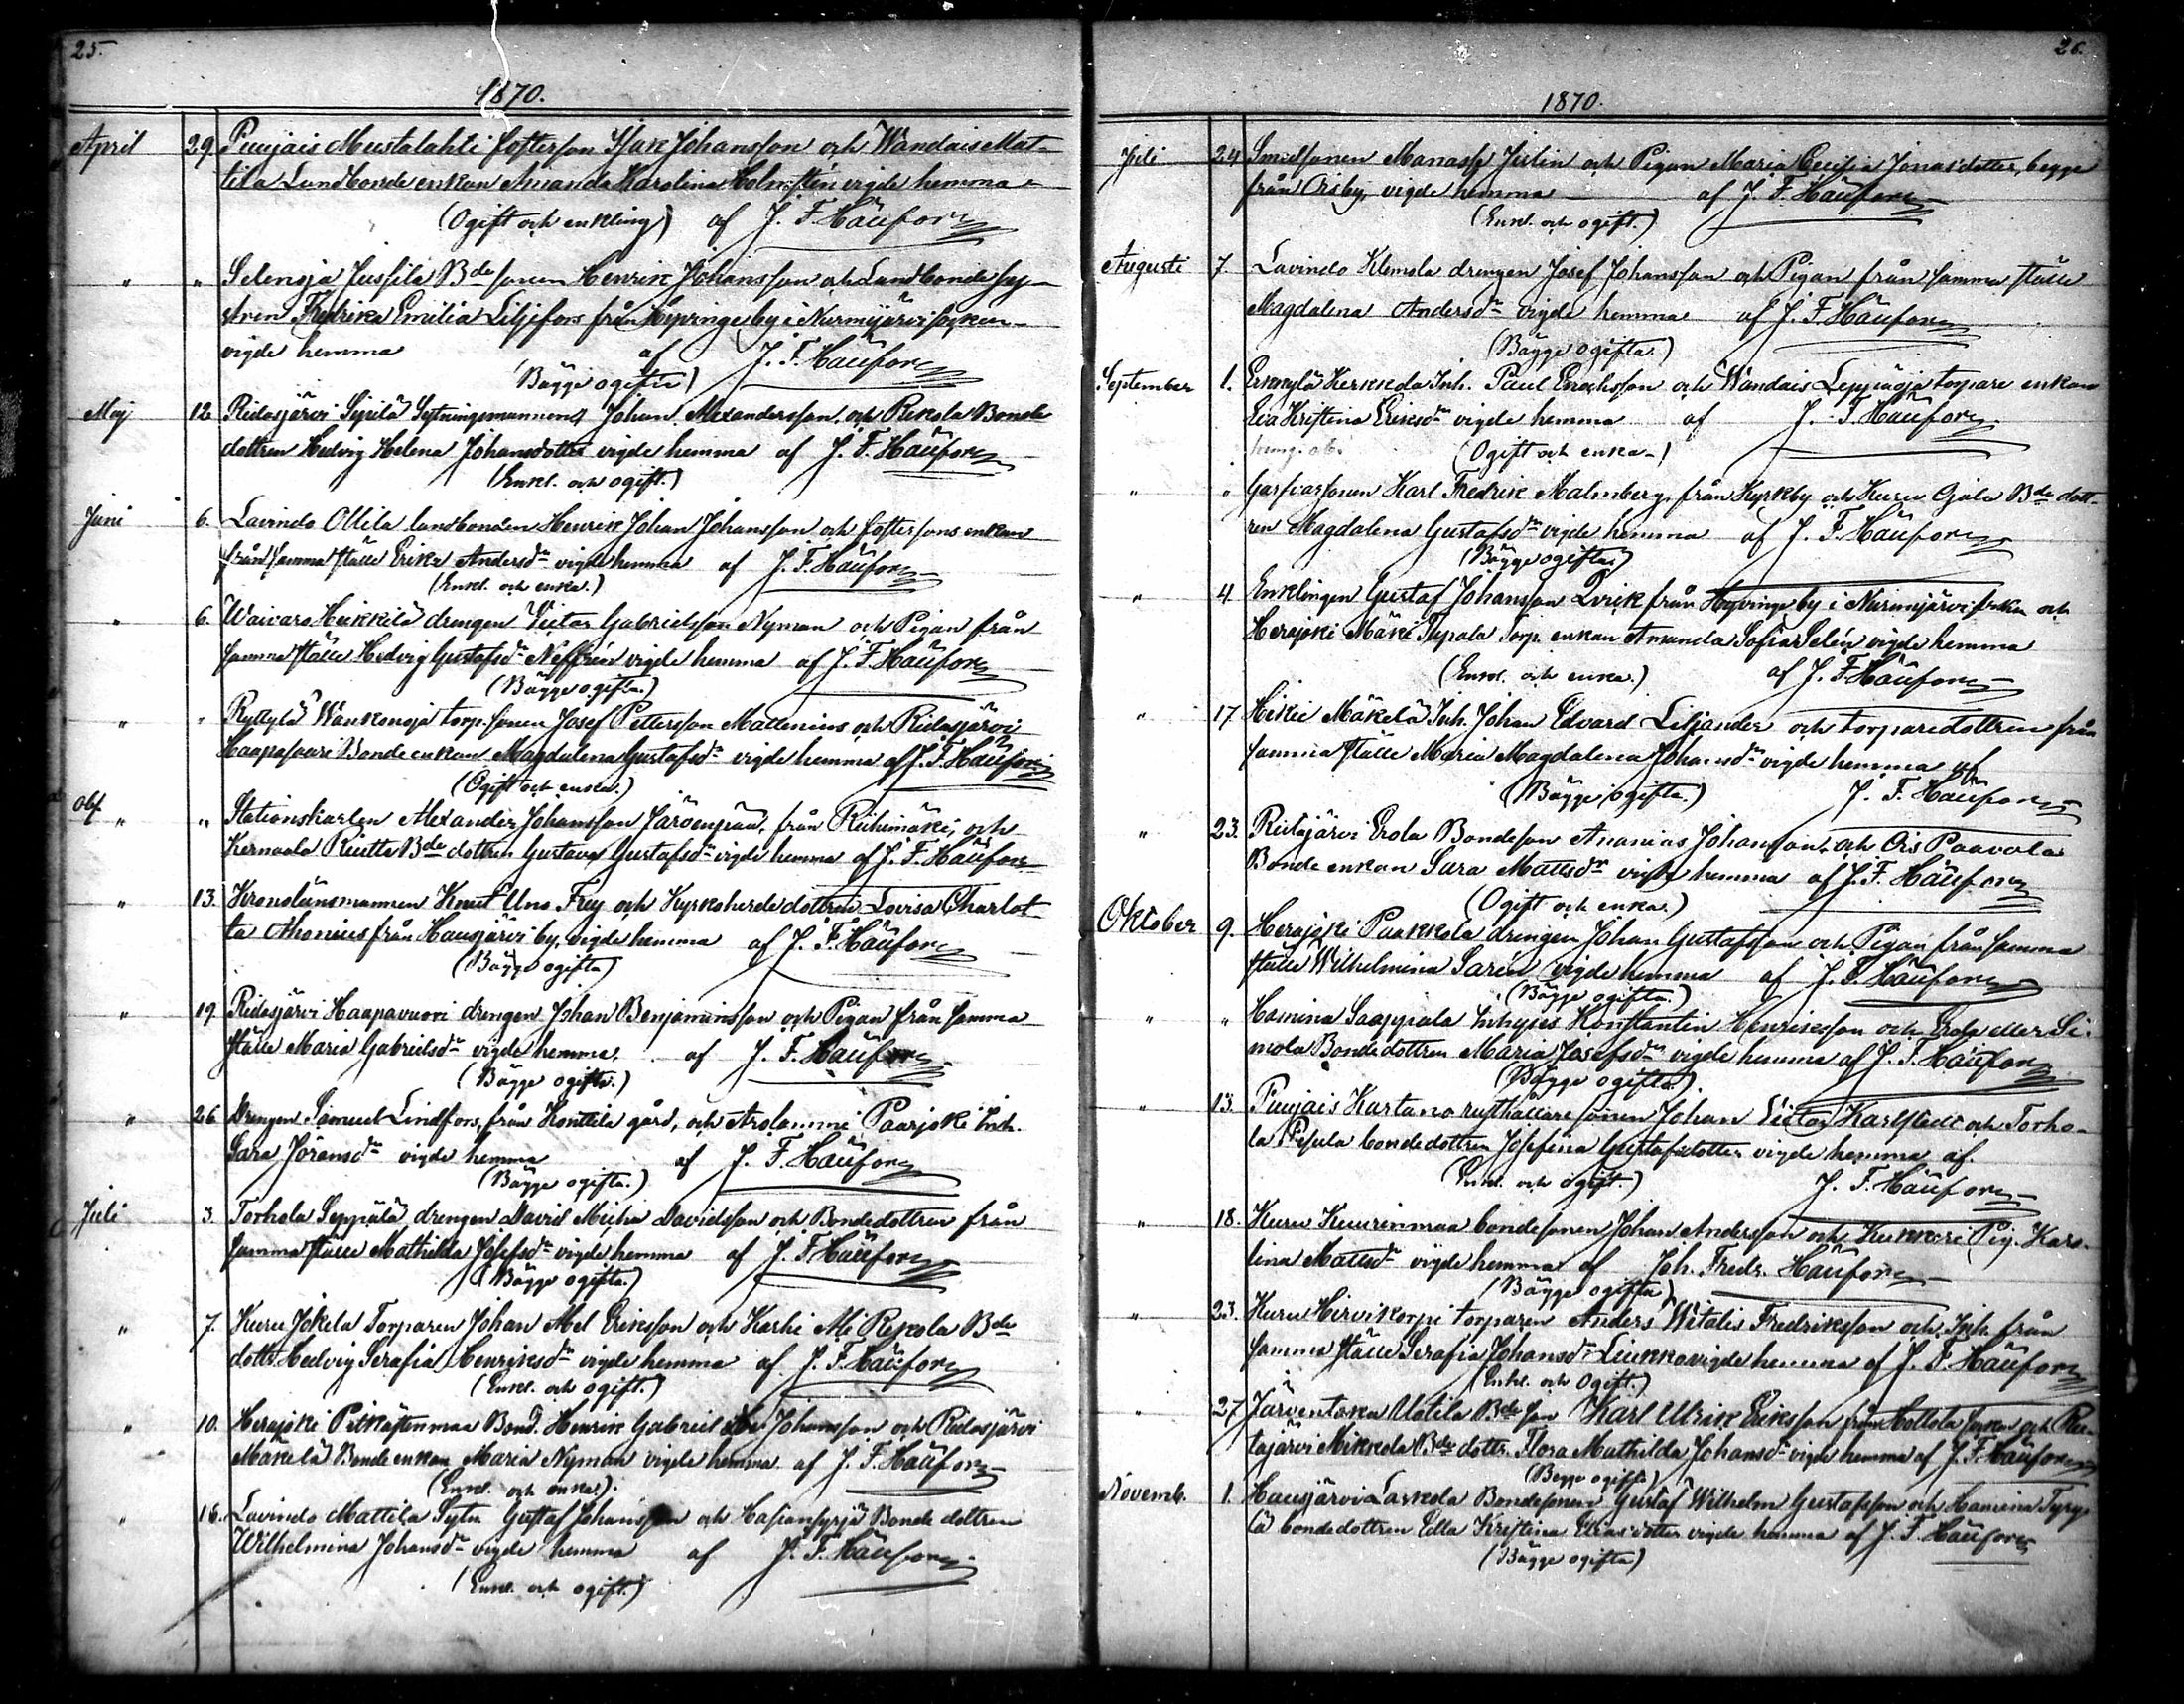 25.
1870.
April 29. Puujais Mustalahti fosterson Isak Johansson och Wandais Mat-
tila Landbonde enkan Amanda Karolina Holmstén vigde hemma
(Ogift och enkling) af J. F. Häufors
" " Selensjä Jussila Bde sonen Henrik Johansson och Landbonde sy-
stren Fredrika Emilia Liljefors från Hyvinge by i Nurmijärvi socken
vigde hemma af J. F. Häufors
(Bägge ogifta)
Maj 12. Ridasjärvi Sipilä Sytningsmannen Johan Alexandersson och Rekola Bonde
dottren Hedvig Helena Johansdotter vigde hemma af J. F. Häufors
(Enkl. och ogift.)
Juni 6. Lavindo Ollila landbonden Henrik Johan Johansson och fostersons enkan
från samma ställe Erika Andersdr vigde hemma af J. F. Häufors
(Enkl. och enka.)
" 6. Waivaro Heikkilä drengen Victor Gabrielsson Nyman och Pigan från
samma ställe Hedvig Gustafsdr Neffrén vigde hemma af J. F. Häufors
(Bägge ogifta.)
" " Ryttylä Wankonoja torp. sonen Josef Pettersson Mattenius och Ridasjärvi
Haapasaari Bonde enkan Magdalena Gustafsdr vigde hemma af J. F. Häufors
(Ogift och enka.)
obf " " Stationskarlen Alexander Johansson Järvenpää, från Riihimäki, och
Kernaala Riutta Bde dottren Gustava Gustafsdr vigde hemma af J. F. Häufors
" 13. Kronolänsmannen Knut Uno Frey och Kyrkoherde dottren Lovisa Charlot-
ta Monius från Hausjärvi by, vigde hemma af J. F. Häufors
(Bägge ogifta)
" 19. Ridasjärvi Haapavuori drengen Johan Benjaminsson och Pigan från samma
ställe Maria Gabrielsdr vigde hemma. af J. F. Häufors
(Bägge ogifta.)
" 26. Drengen Samuel Lindfors, från Konttila gård, och Arolammi Paarjoki Inh.
Sara Jöransdr vigde hemma af J. F. Häufors
(Bägge ogifta.)
Juli 3. Torhola Seppälä drengen David Micha Davidsson och Bondedottren från
samma ställe Mathilda Josefsdr vigde hemma af J. F. Häufors
(Bägge ogifta.)
" 7. Kuru Jokela Torparen Johan Abel Eriksson och Karhi Ali Rekola Bde
dottr. Hedvig Serafia Henriksdr vigde hemma af J. F. Häufors
(Enkl. och ogift.)
" 10. Herajoki Pitkäsenmaa Bond. Henrik Gabriel Johansson och Ridasjärvi
Makelä Bonde enkan Maria Nyman vigde hemma af J. F. Häufors
(Enkl. och enka.)
" 16. Lavindo Mattila Sytn. Gustaf Johansson och Hasiansyrjä Bonde dottren
Wilhelmina Johansdr vigde hemma af J. F. Häufors
(Enkl. och ogift.)
26.
1870.
Juli 24. Smedsonen Manasse Jerlin och Pigan Maria Cecilia Jonasdotter, begge
från Oisby, vigde hemma af J. F. Häufors
(Enkl. och ogift.)
Augusti 7. Lavindo Klemola drengen Josef Johansson och Pigan från samma ställe
Magdalena Andersdr vigde hemma af J. F. Häufors
(Bägge ogifta.)
September 1. Erkkylä Kerkkola Inh. Paul Erichsson och Wandais Leppäoja torpare enkan
Eva Kristina Eriksdr vigde hemma af J. F. Häufors
(Ogift och enka.)
" " Garfvarsonen Karl Fredrik Malmberg, från Kyrkby och Kuru Ojala Bde dott-
ren Magdalena Gustafsdr vigde hemma af J. F. Häufors
(Bägge ogifta)
" 4. Enklingen Gustaf Johansson Qvick från Hyvinge by i Nurmijärvi socken och
Herajoki Mäki Tupala Torp. enkan Amanda Sofia Selén vigde hemma
(Enkl. och enka.) af J. F. Häufors
" 17. Hikie Mäkelä Inh. Johan Edvard Liljander och torparedottren från
samma ställe Maria Magdalena Johansdr vigde hemma af
(Bägge ogifta.) J. F. Häufors
" 23. Ridasjärvi Erola Bondeson Ananias Johansson, och Ois Paavola
Bonde enkan Sara Mattsdr vigde hemma af J. F. Häufors
(Ogift och enka.)
Oktober 9. Herajoki Paakkola drengen Johan Gustafsson och Pigan från samma
ställe Wilhelmina Sarén vigde hemma af J. F. Häufors
(Bägge ogifta.)
" " Hamina Saappala Inhyses Konstantin Henriksson och Erola eller Si-
mola Bondedottren Maria Josefsdr vigde hemma af J. F. Häufors
(Bägge ogifta.)
" 13. Puujais Kartano rusthållare sonen Johan Victor Karlstedt och Torho-
la Pipula bondedottren Josefina Gustafsdotter vigde hemma af.
(Enkl. och ogift.) J. F. Häufors
" 18. Kuru Kuurinmaa bondesonen Johan Andersson och Kukkari Pig. Karo-
lina Mattsdr vigde hemma af Joh. Fredr. Häufors
(Bägge ogifta)
" 23. Kuru Hirvikorpi torparen Anders Witalis Fredriksson och Inh. från
samma ställe Serafia Johansdr Liukko vigde hemma af J. F. Häufors
(Enkl. och Ogift.)
" 27. Järventaka Uotila Bde son Karl Ulrik Eriksson från Hollola socken och Rii-
tajärvi Mikkola Bde dottr. Flora Mathilda Johansdr vigde hemma af J. F. Häufors
(Begge ogifta)
Novemb. 1. Hausjärvi Laskola Bondesonen Gustaf Wilhelm Gustafsson och Hamina Tyry-
lä bondedottren Edla Kristina Eliasdotter vigde hemma af J. F. Häufors
(Bägge ogifta)